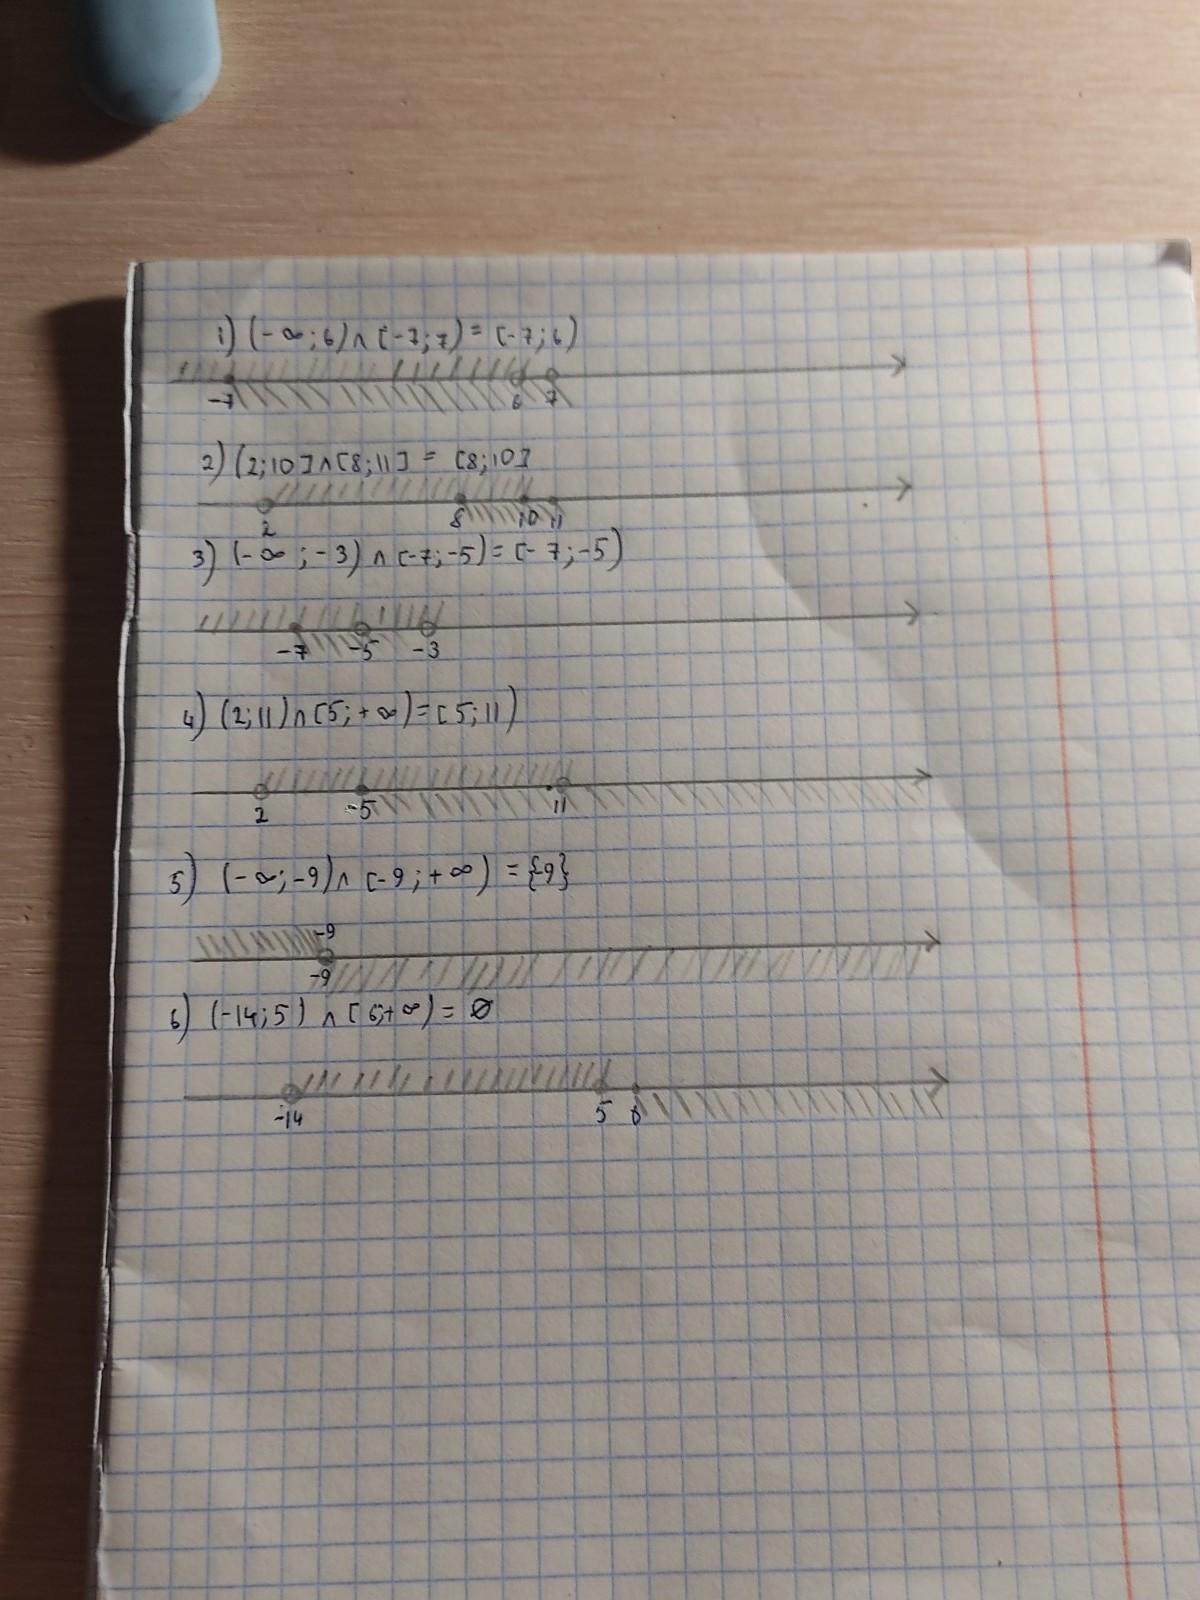 1) (-∞; 6) ∧ [-7; 7) = [-7; 6)
-7 6 7
2) (2; 10] ∧ [8; 11] = [8; 10]
2 8 10 11
3) (-∞; -3) ∧ [-7; -5) = [-7; -5)
-7 -5 -3
4) (2; 11) ∧ [5; +∞) = [5; 11)
2 -5 11
5) (-∞; -9) ∧ [-9; +∞) = {9}
-9
-9
6) (-14; 5) ∧ [6; +∞) = Ø
-14 5 6